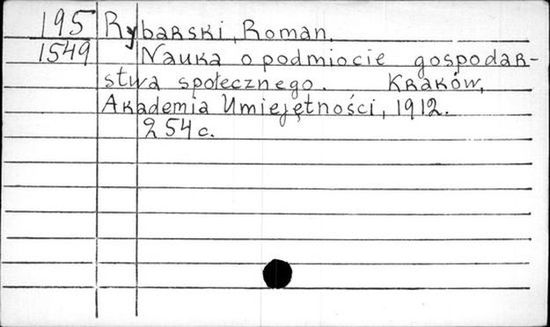 195 Rybarski, Roman.
1549 Nauka o podmiocie gospodar-
stwa społecznego. Kraków,
Akademia Umiejętności, 1912.
254 c.